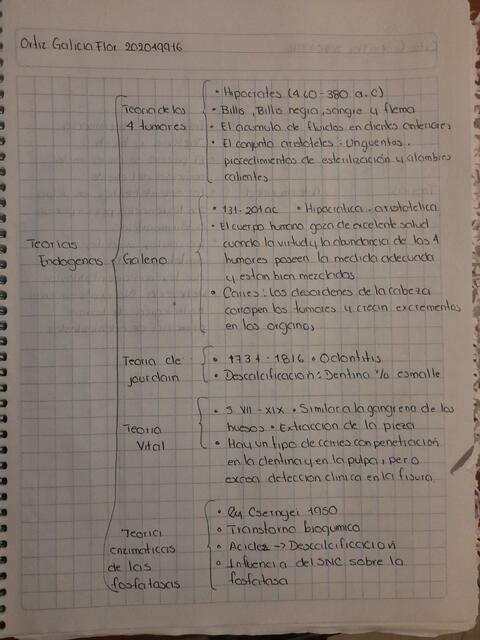 Ortiz Galicia Flor 202019916
Teorias
Endogenas
Teoria de los
4 tumores
• Hipocrates (460-380 a.c)
• Billis, Billis negra, sangre y flema
• El acumulo de fluidos en dientes anteriores
• El conjunto aristoteles: Unguentos.
procedimientos de esterilización y alambres
calientes
Galeno
• 131-201ac • Hipocratica - aristotelica
• El cuerpo humano goza de excelente salud
cuando la virtud y la abundancia de los 4
humores poseen la medida adecuada
y estan bien mezclados
• Caries: Los desordenes de la cabeza
corropen los tumores y crean excrementos
en los organos
Teoria de
jourdain
• 1734-1816 • Odontitis
• Descalcificacion: Dentina % esmalte
Teoria
Vital
• S. VII-XIX • Similar a la gangrena de los
huesos • Extraccion de la pieza
• Hay un tipo de caries con penetracion
en la dentina y en la pulpa, pero
escasa deteccion clinica en la fisura
Teoria
enzimaticas
de las
fosfatasas
• Csernyei 1950
• Transtorno bioquimico
• Acidez → Descalcificacion
• Influencia del SNC sobre la
fosfatasa